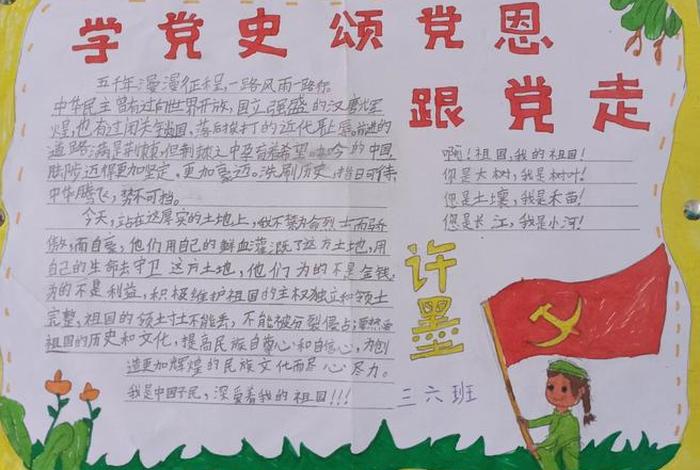 学党史 颂党恩
跟党走
五千年漫漫征程,一路风雨一路你
中华民主曾有过向世界开放,国立强盛的汉唐辉
煌,也有过闭关锁国,落后挨打的近代耻辱,前进的
道路满是荆棘,但荆棘之中孕育着希望 的中国,
陆陟迈得更加坚定,更加豪迈。洗刷历史,指日可待,
中华腾飞,势不可挡。
今天,站在这厚实的土地上,我不禁为烈士而骄
傲,而自豪,他们用自己的鲜血灌溉了这方土地,用
自己的生命去守卫这方土地,他们为的不是金钱,
为的不是利益,积极维护祖国的主权独立和领土
完整,祖国的领土寸土不能丢,不能被分裂侵占,
祖国的历史和文化,提高民族自尊心和自信心,为创
造更加辉煌的民族文化而尽心尽力。
我是中国子民,深爱着我的祖国!!!
啊!祖国,我的祖国!
你是大树,我是树叶!
您是土壤,我是禾苗!
您是长江,我是小河!
许墨
三六班